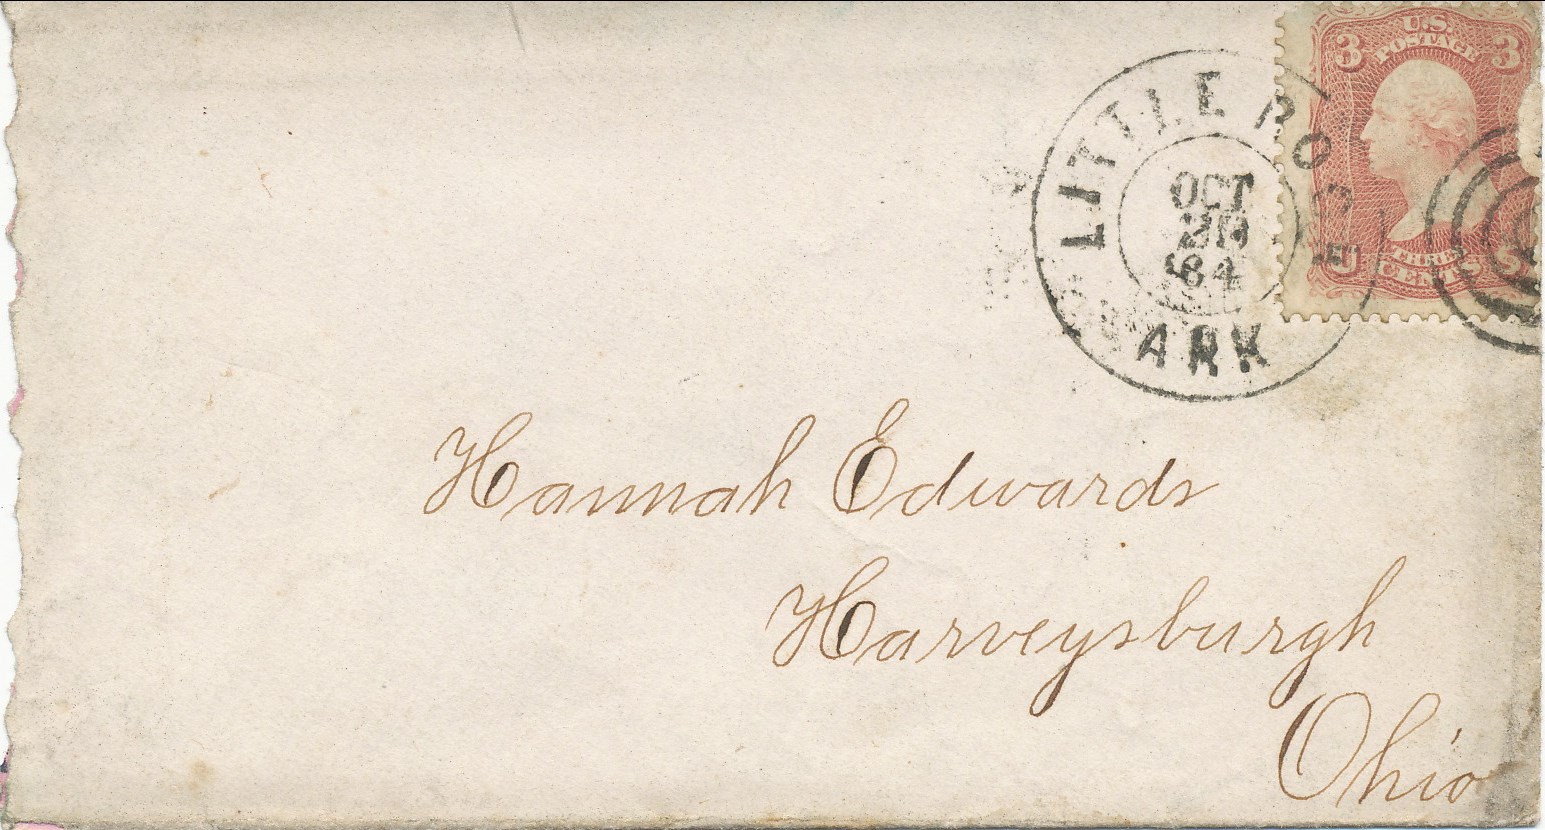 U.S.
POSTAGE
3 3
THREE
CENTS
U S
LITTLE ROCK
OCT
'64
ARK
Hannah Edwards
Harveysburgh
Ohio